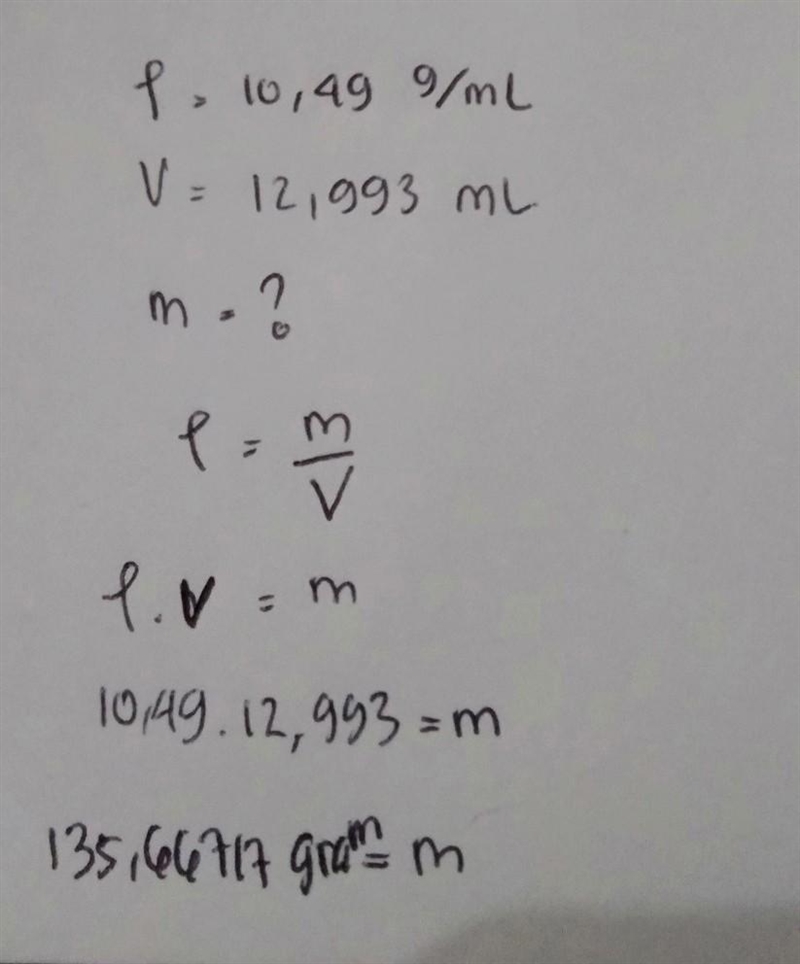 ρ = 10,49 g/mL
V = 12,993 mL
m = ?
ρ = m/V
ρ . V = m
10,49 . 12,993 = m
135,66717 gram = m